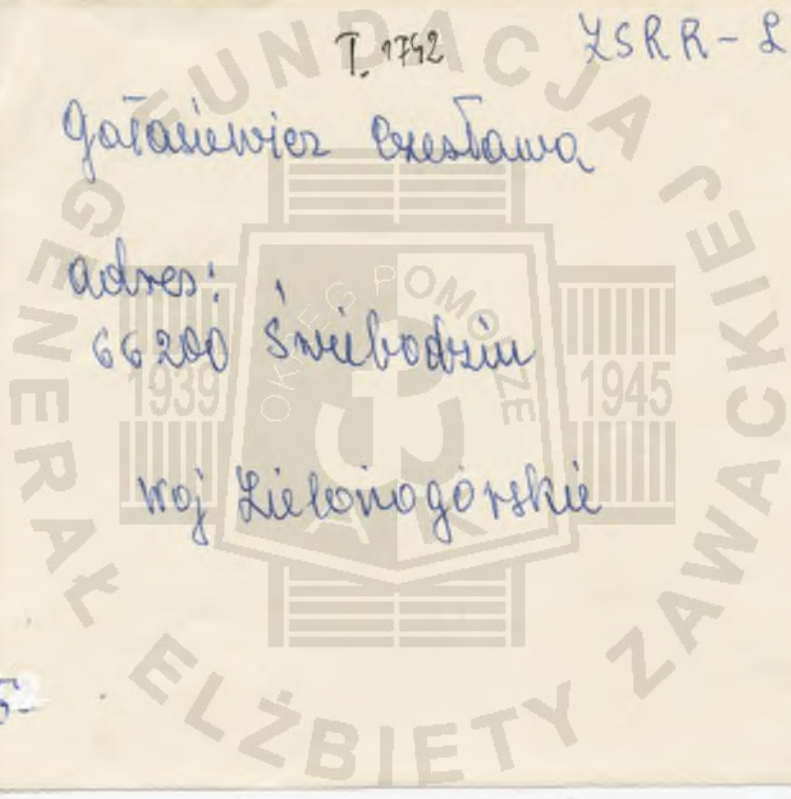 T. 1742
ZSRR - L
Gałasiewicz Czesława
adres:
66200 Świebodzin
woj Zielonogórskie
FUNDACJA GENERAŁ ELŻBIETY ZAWACKIEJ
OKRĘG POMORZE
1939
1945
AK
5-